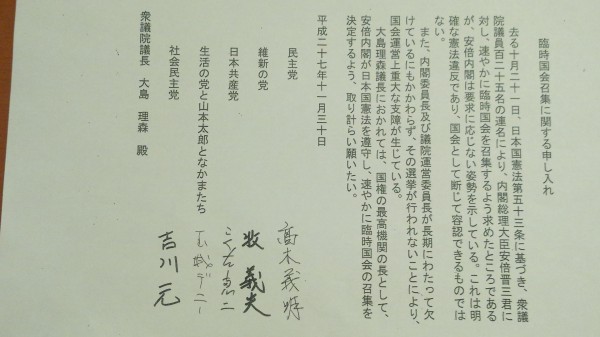 臨時国会召集に関する申し入れ
去る十月二十一日、日本国憲法第五十三条に基づき、衆議
院議員百二十五名の連名により、内閣総理大臣安倍晋三君に
対し、速やかに臨時国会を召集するよう求めたところである
が、安倍内閣は要求に応じない姿勢を示している。これは明
確な憲法違反であり、国会として断じて容認できるものでは
ない。
また、内閣委員長及び議院運営委員長が長期にわたって欠
けているにもかかわらず、その選挙が行われないことにより、
国会運営上重大な支障が生じている。
大島理森議長におかれては、国権の最高機関の長として、
安倍内閣が日本国憲法を遵守し、速やかに臨時国会の召集を
決定するよう、取り計らい願いたい。
平成二十七年十一月三十日
民主党 高木義明
維新の党 牧 義夫
日本共産党 こくた恵二
生活の党と山本太郎となかまたち 玉城デニー
社会民主党 吉川 元
衆議院議長 大島 理森 殿